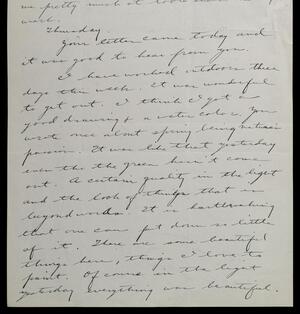 me pretty much at loose
work.
Thursday.
Your letter came today and
it was good to hear from you.
I have worked outdoors three
days this week. It was wonderful
to get out. I think I got a
good drawing & a water color. You
wrote once about spring being nature's
passion. It was like that yesterday
even tho the green hasn't come
out. A certain quality in the light
and the look of things that is
beyond words. It is heartbreaking
that one can put down so little
of it. There are some beautiful
things here, things I love to
paint. Of course in the light
yesterday everything was beautiful.